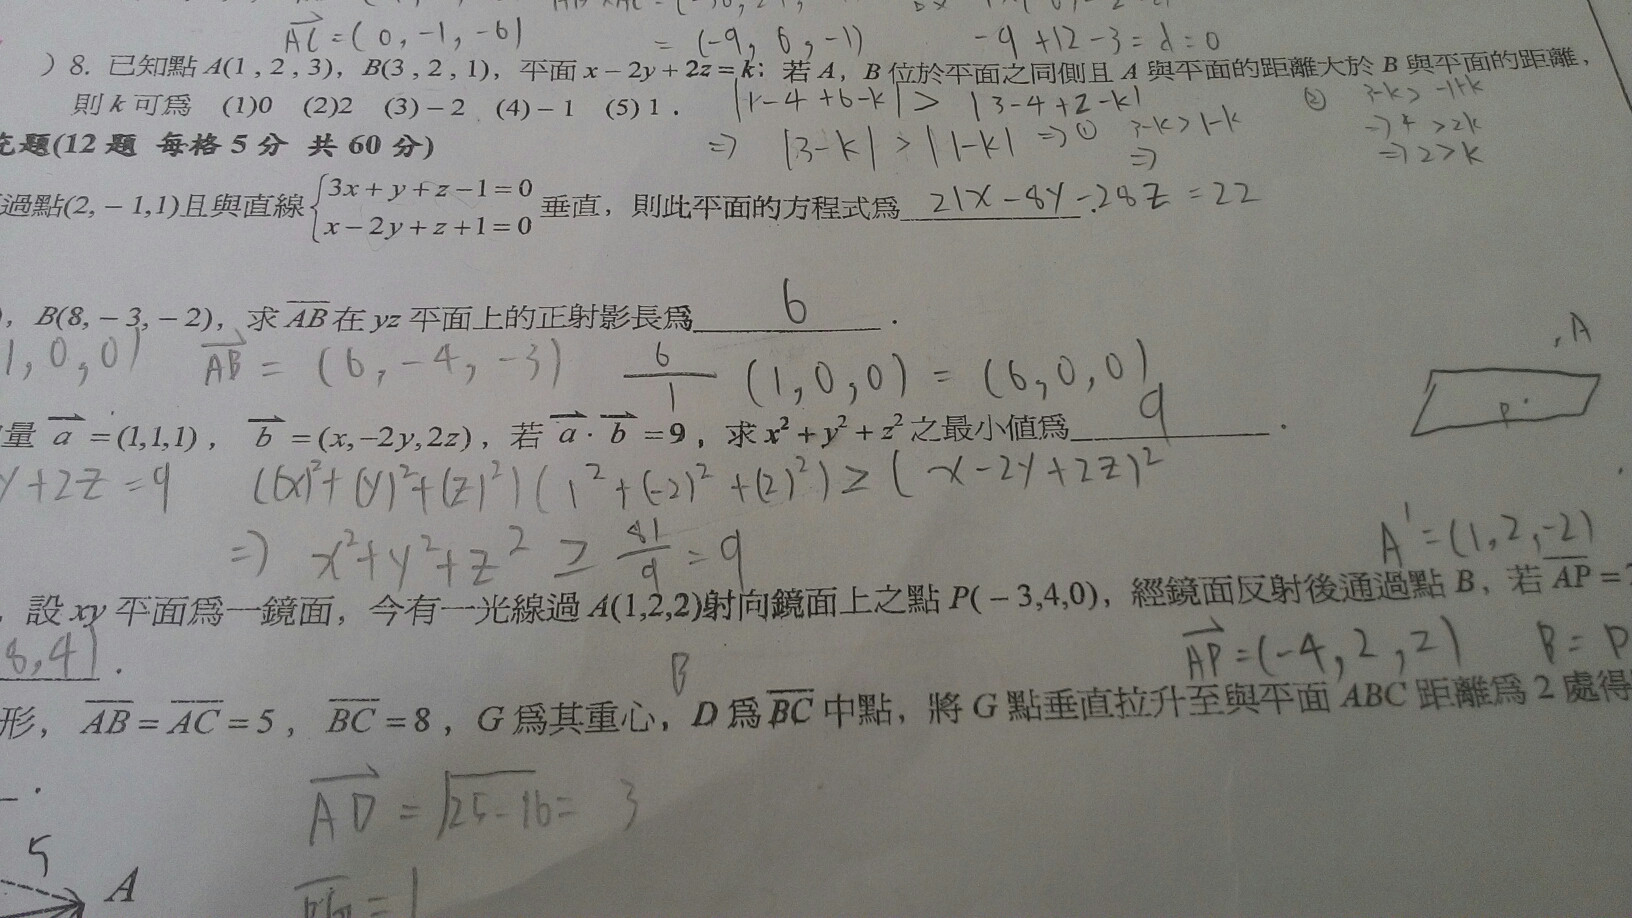 AC = (0, -1, -6)
= (-9, 6, -1) -9+12-3 = d = 0
) 8. 已知點 A(1 , 2 , 3), B(3 , 2 , 1), 平面 x − 2y + 2z = k; 若 A, B 位於平面之同側且 A 與平面的距離大於 B 與平面的距離,
則 k 可為 (1)0 (2)2 (3) − 2 (4) − 1 (5) 1 .
|1-4+6-k| > |3-4+2-k|
② 3-k > -1+k
⇒ 4 > 2k
⇒ 2 > k
充題(12 題 每格 5 分 共 60 分)
⇒ |3-k| > |1-k| ⇒ ① 3-k > 1-k
⇒
過點(2, − 1,1)且與直線 { 3x + y + z − 1 = 0
x − 2y + z + 1 = 0 垂直, 則此平面的方程式為 21x-8y-28z = 22 .
), B(8, − 3, − 2), 求 AB 在 yz 平面上的正射影長為 6 .
1, 0, 0) AB = (6, -4, -3) 6/1 (1, 0, 0) = (6, 0, 0)
A
P
量 a = (1,1,1) , b = (x,−2y,2z) , 若 a · b = 9 , 求 x² + y² + z² 之最小值為 9 .
y+2z = 9 ((x)²+(y)²+(z)²)(1²+(-2)²+(2)²) ≥ (x-2y+2z)²
⇒ x²+y²+z² ≥ 81/9 = 9
A' = (1, 2, -2)
. 設 xy 平面為一鏡面, 今有一光線過 A(1,2,2)射向鏡面上之點 P( − 3,4,0), 經鏡面反射後通過點 B, 若 AP =
8, 4) .
AP = (-4, 2, 2) B = P
B
形, AB = AC = 5 , BC = 8 , G 為其重心, D 為 BC 中點, 將 G 點垂直拉升至與平面 ABC 距離為 2 處得
.
AD = √25-16 = 3
5
A
= 1